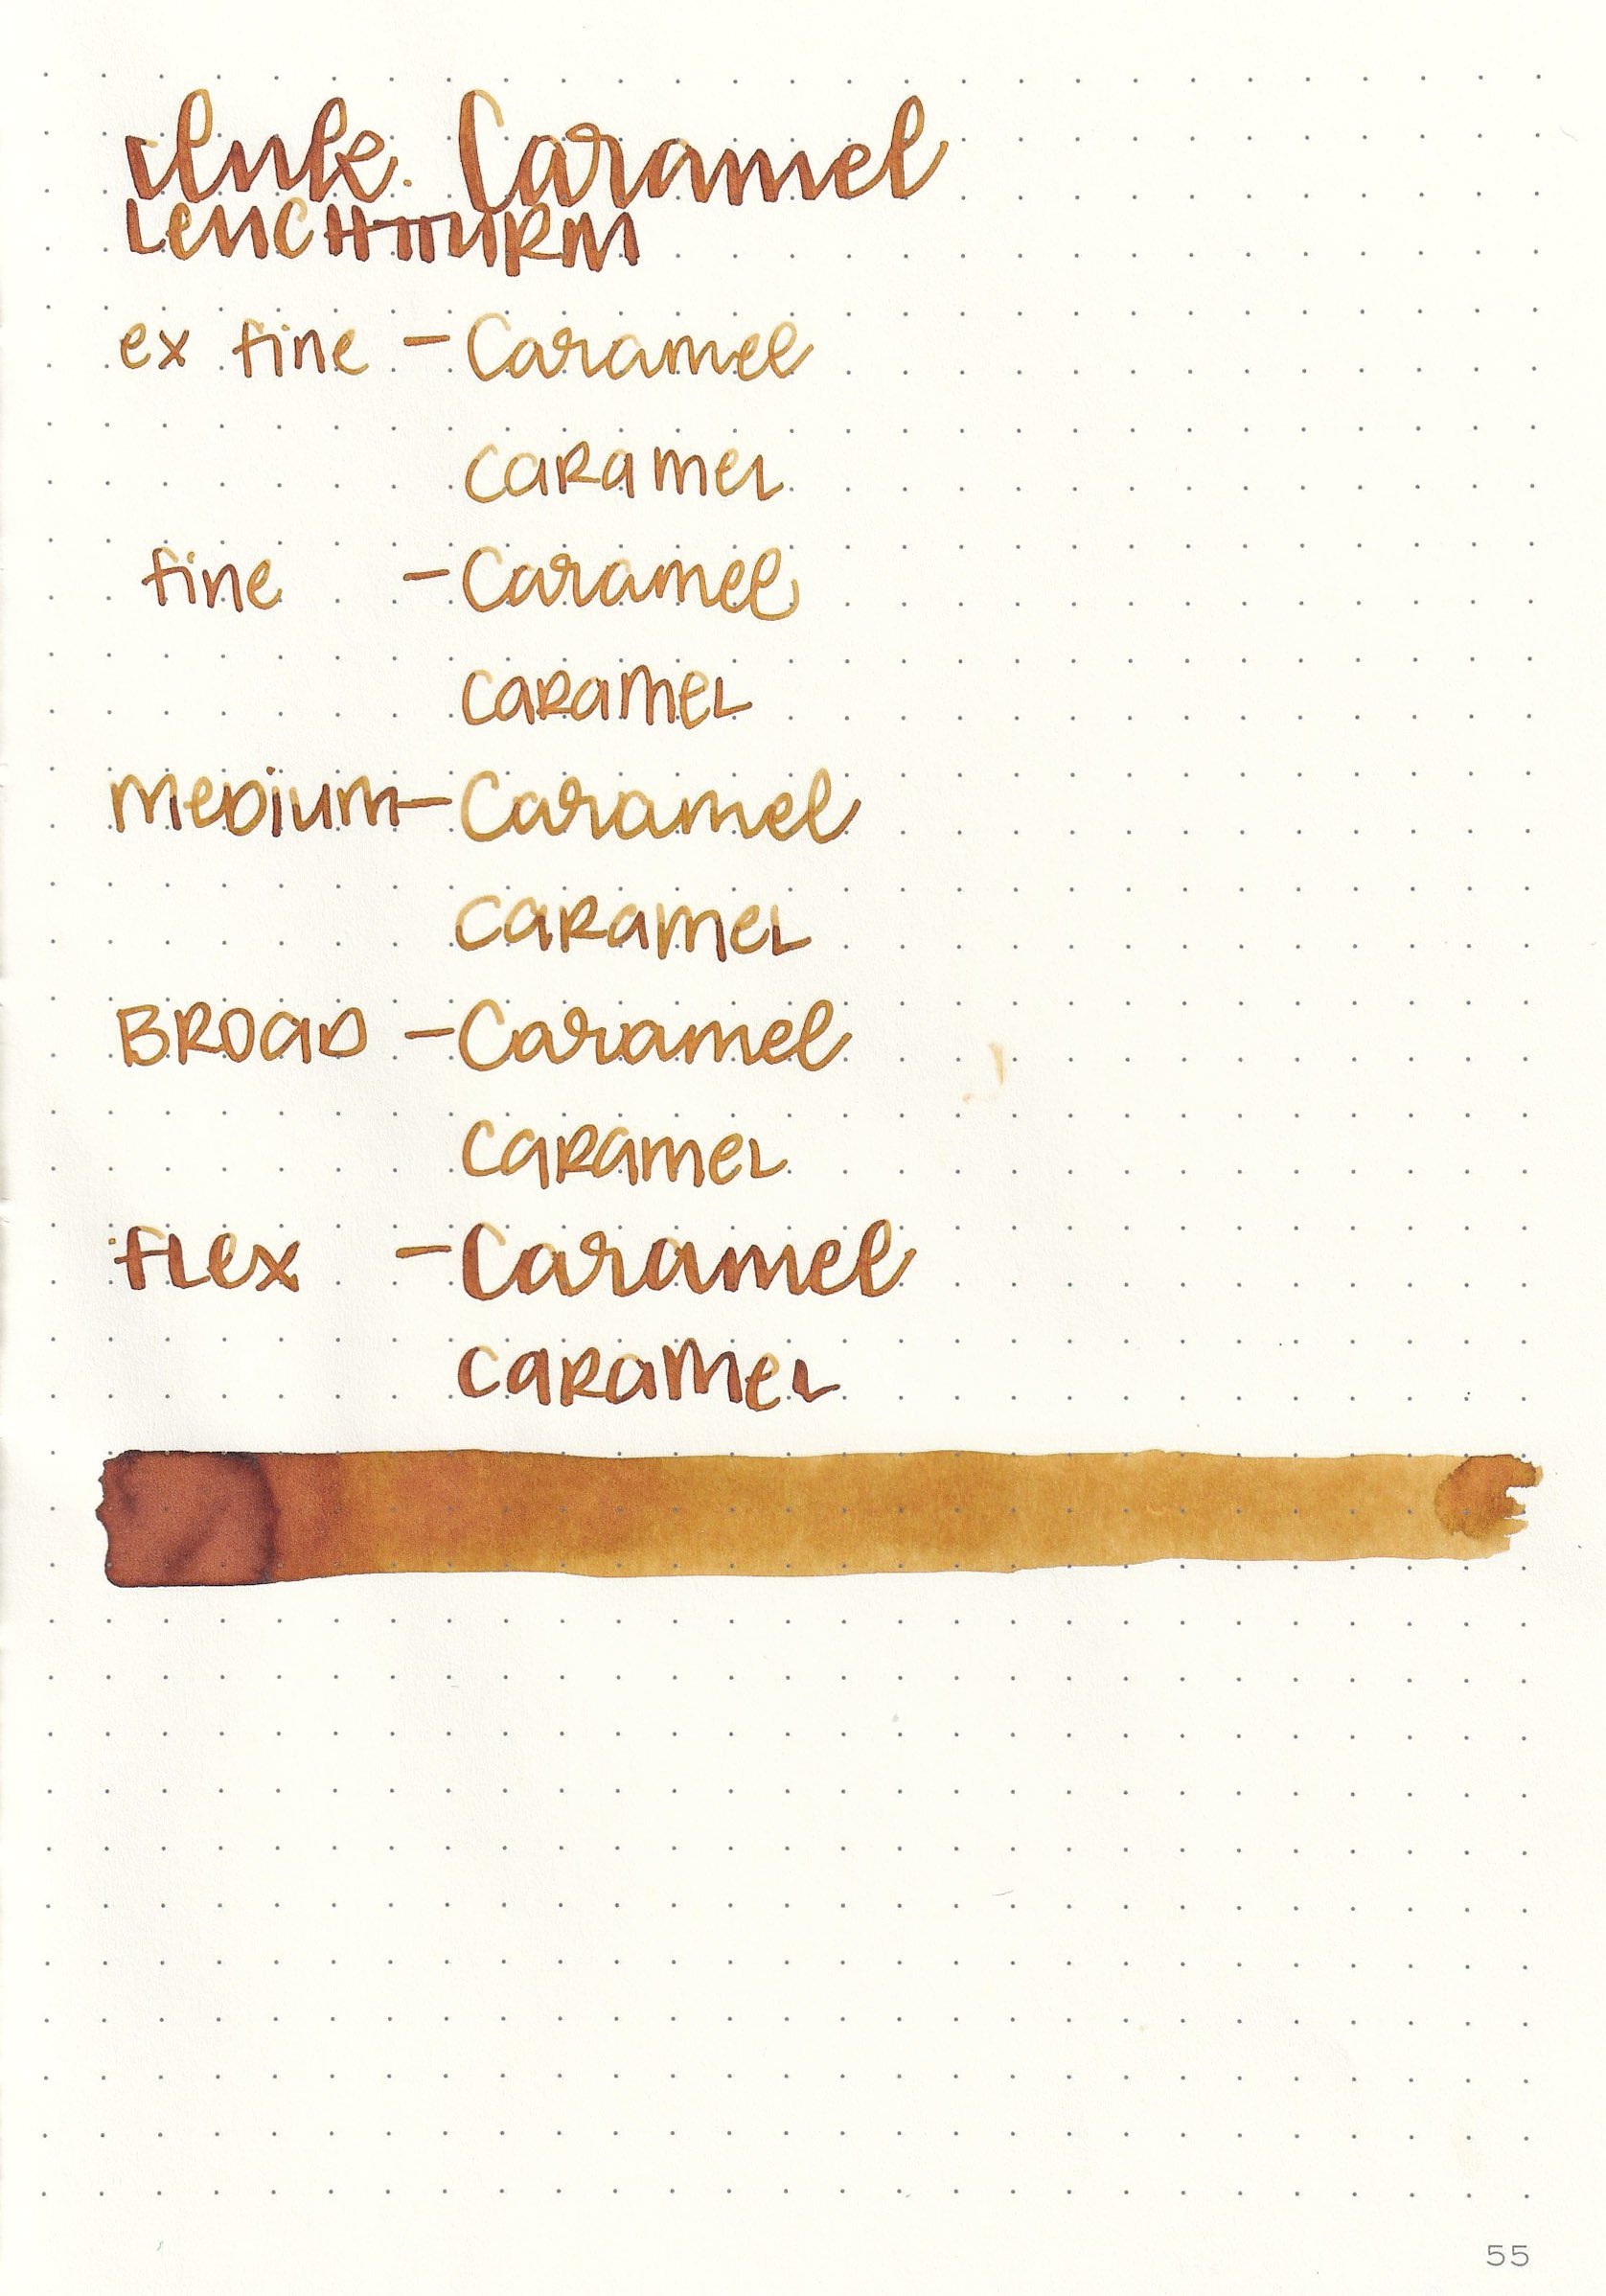 Ink. Caramel
LEUCHTTURM
ex fine - Caramel
CARAMEL
fine - Caramel
CARAMEL
MEDIUM - Caramel
CARAMEL
BROAD - Caramel
CARAMEL
fLex - Caramel
CARAMEL
55